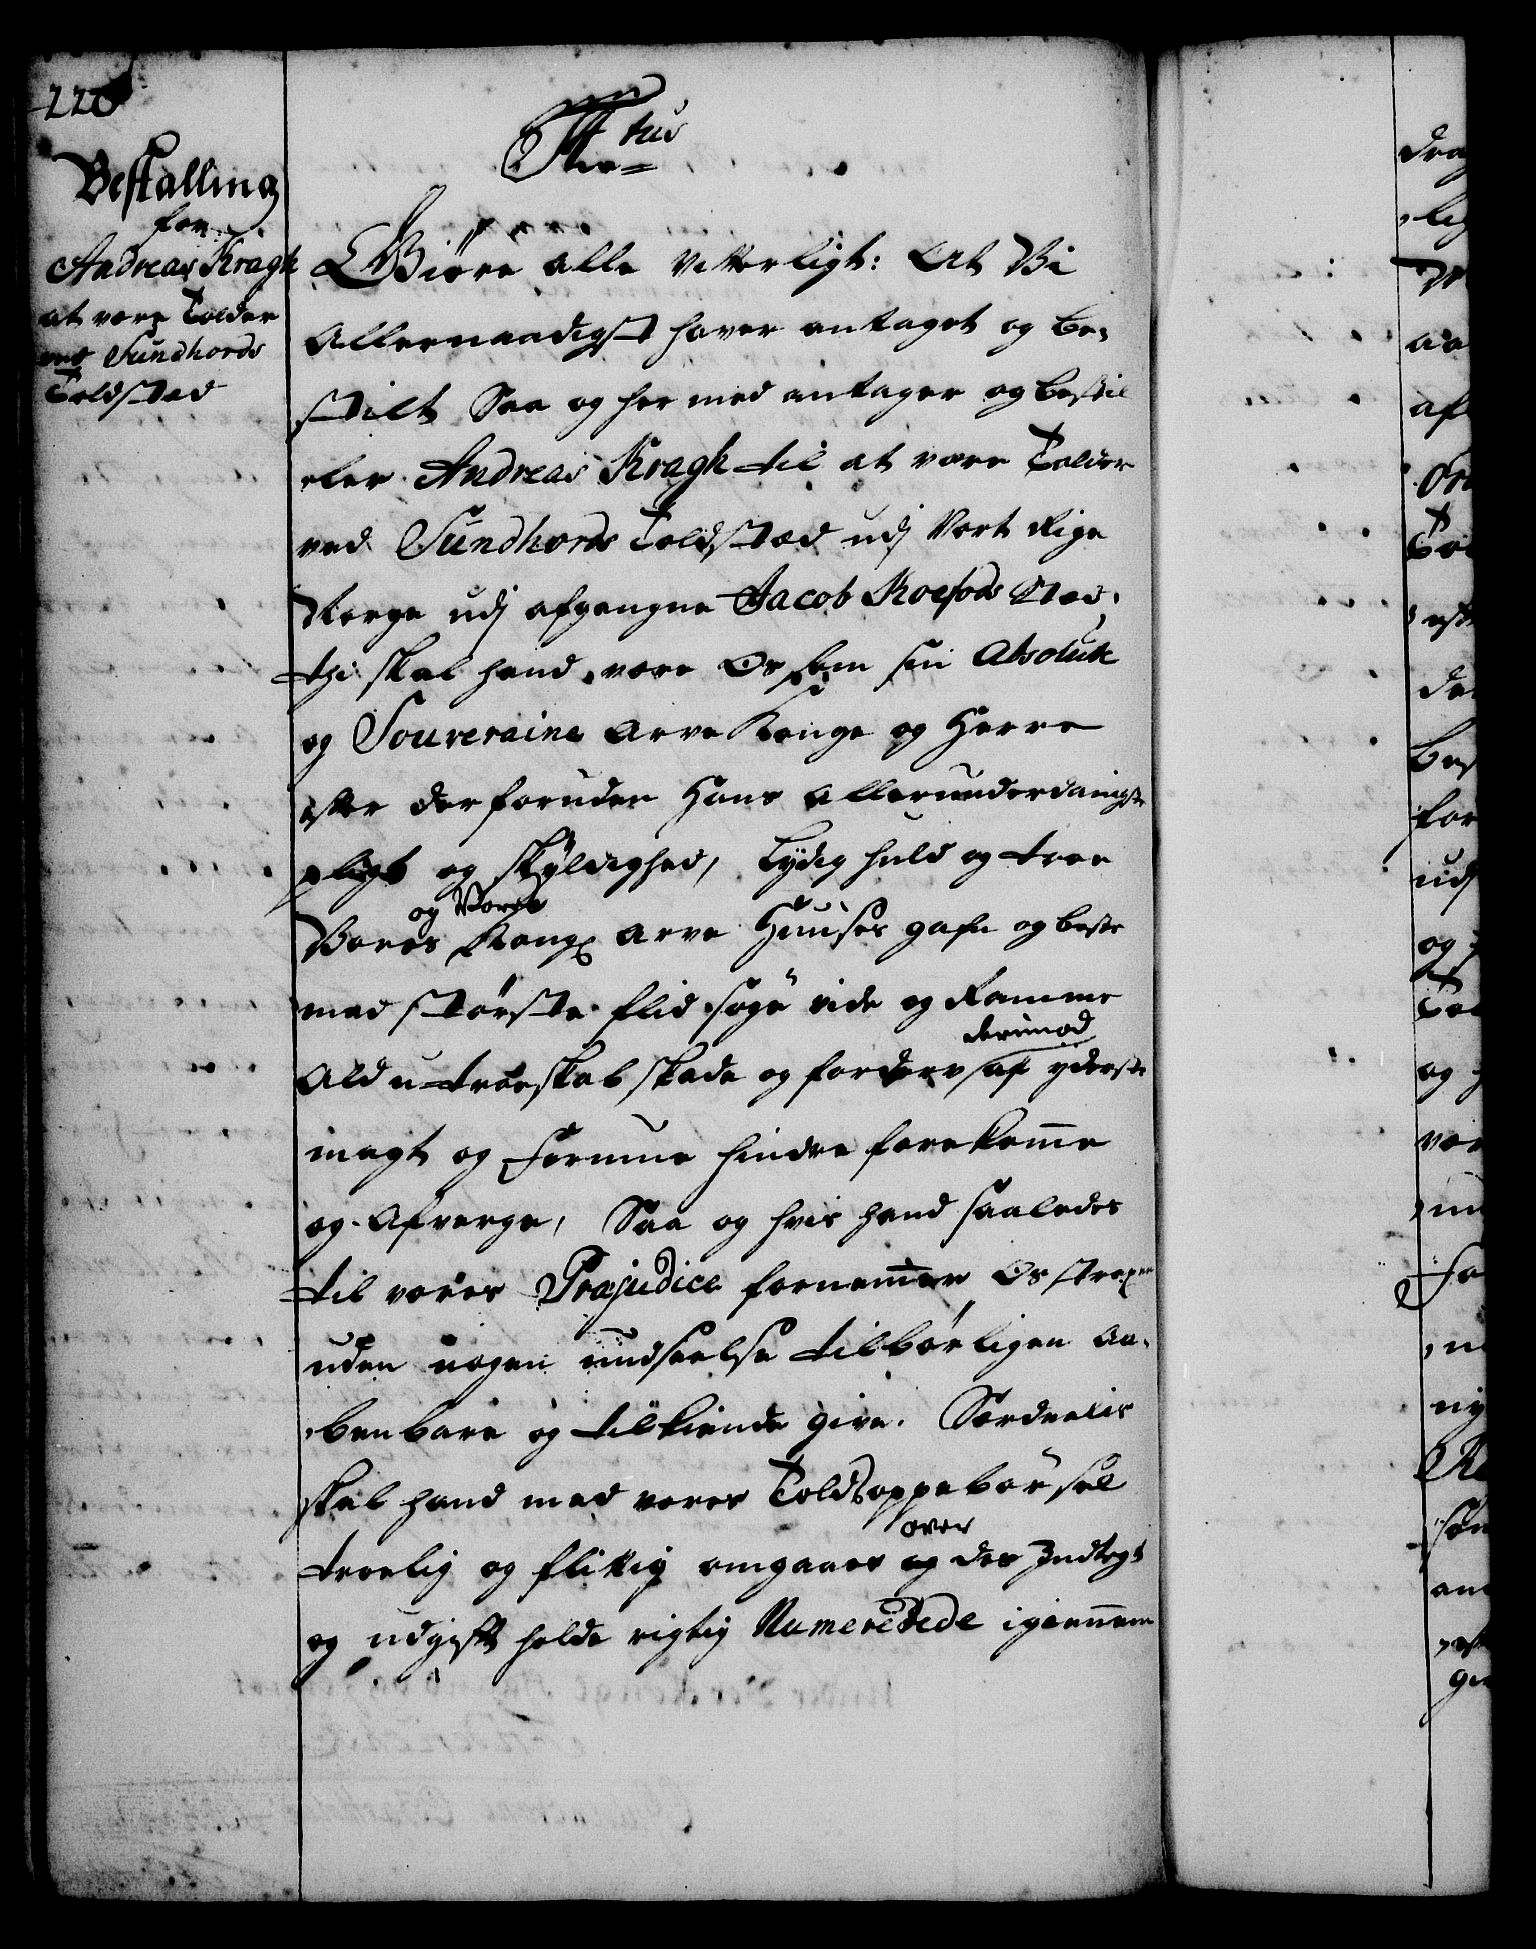 220
Bestalling
for
Andreas Kragh
at være Tolder
ved Sundhords
Toldsted
tus
Giøre alle Vitterligt: At Vi
Allernaadigst haver antaget og be,
stilt Saa og her med antager og bestil
eler Andreas Kragh til at være Tolder
ved Sundhords Toldsted udj Vort Rige
Norge udj afgangne Jacob Roefods Sted,
thi skal hand være Os som sin Absolute
og Souveraine Arve Konge og Herre
efter derforuden Hans allerunderdanigste
pligt og skÿldighed, Lÿdig huld og troe
og Vores
Vores Kongl Arve Huuses gafn og beste
med største flid søge vide og Ramme
Ald utroeskab skade og forderv af yderste
derimod
magt og formue hindre forekom̄e
og Afverge, Saa og hvis hand saaledes
til vores Præjudice fornem̄er Os strax
uden nogen undseelse tilbørligen Aa,
benbare og tilkiende give. Særdeelis
skal hand med vores Tolds oppebørsel
troelig og flittig omgaaes og des Indtegt
over
og udgift holde rigtig Numerede igiennem